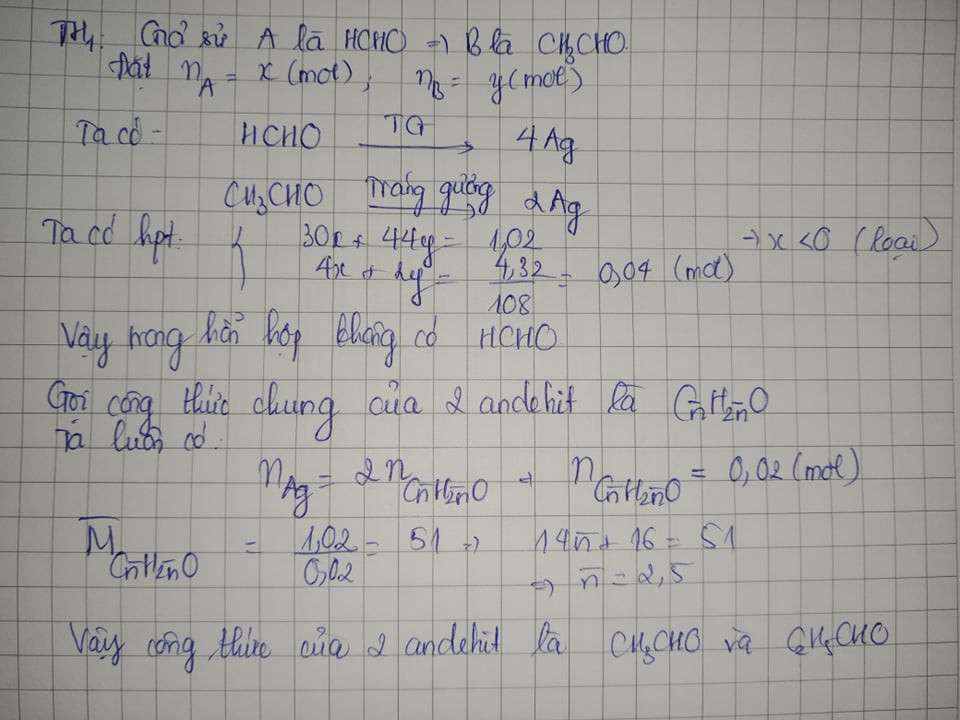 TH₁: Giả sử A là HCHO => B là CH₃CHO.
Đặt n_A = x (mol), n_B = y (mol)
Ta có - HCHO TG → 4Ag
CH₃CHO Tráng gương → 2Ag
Ta có hpt: { 30x + 44y = 1,02 => x < 0 (loại)
4x + 2y = 4,32/108 = 0,04 (mol)
Vậy trong hỗn hợp không có HCHO
Gọi công thức chung của 2 andehit là Cn̄H2n̄O
Ta luôn có:
n_Ag = 2 n_Cn̄H2n̄O => n_Cn̄H2n̄O = 0,02 (mol)
M̄_Cn̄H2n̄O = 1,02/0,02 = 51 => 14n̄ + 16 = 51
=> n̄ = 2,5
Vậy công thức của 2 andehit là CH₃CHO và C₂H₅CHO